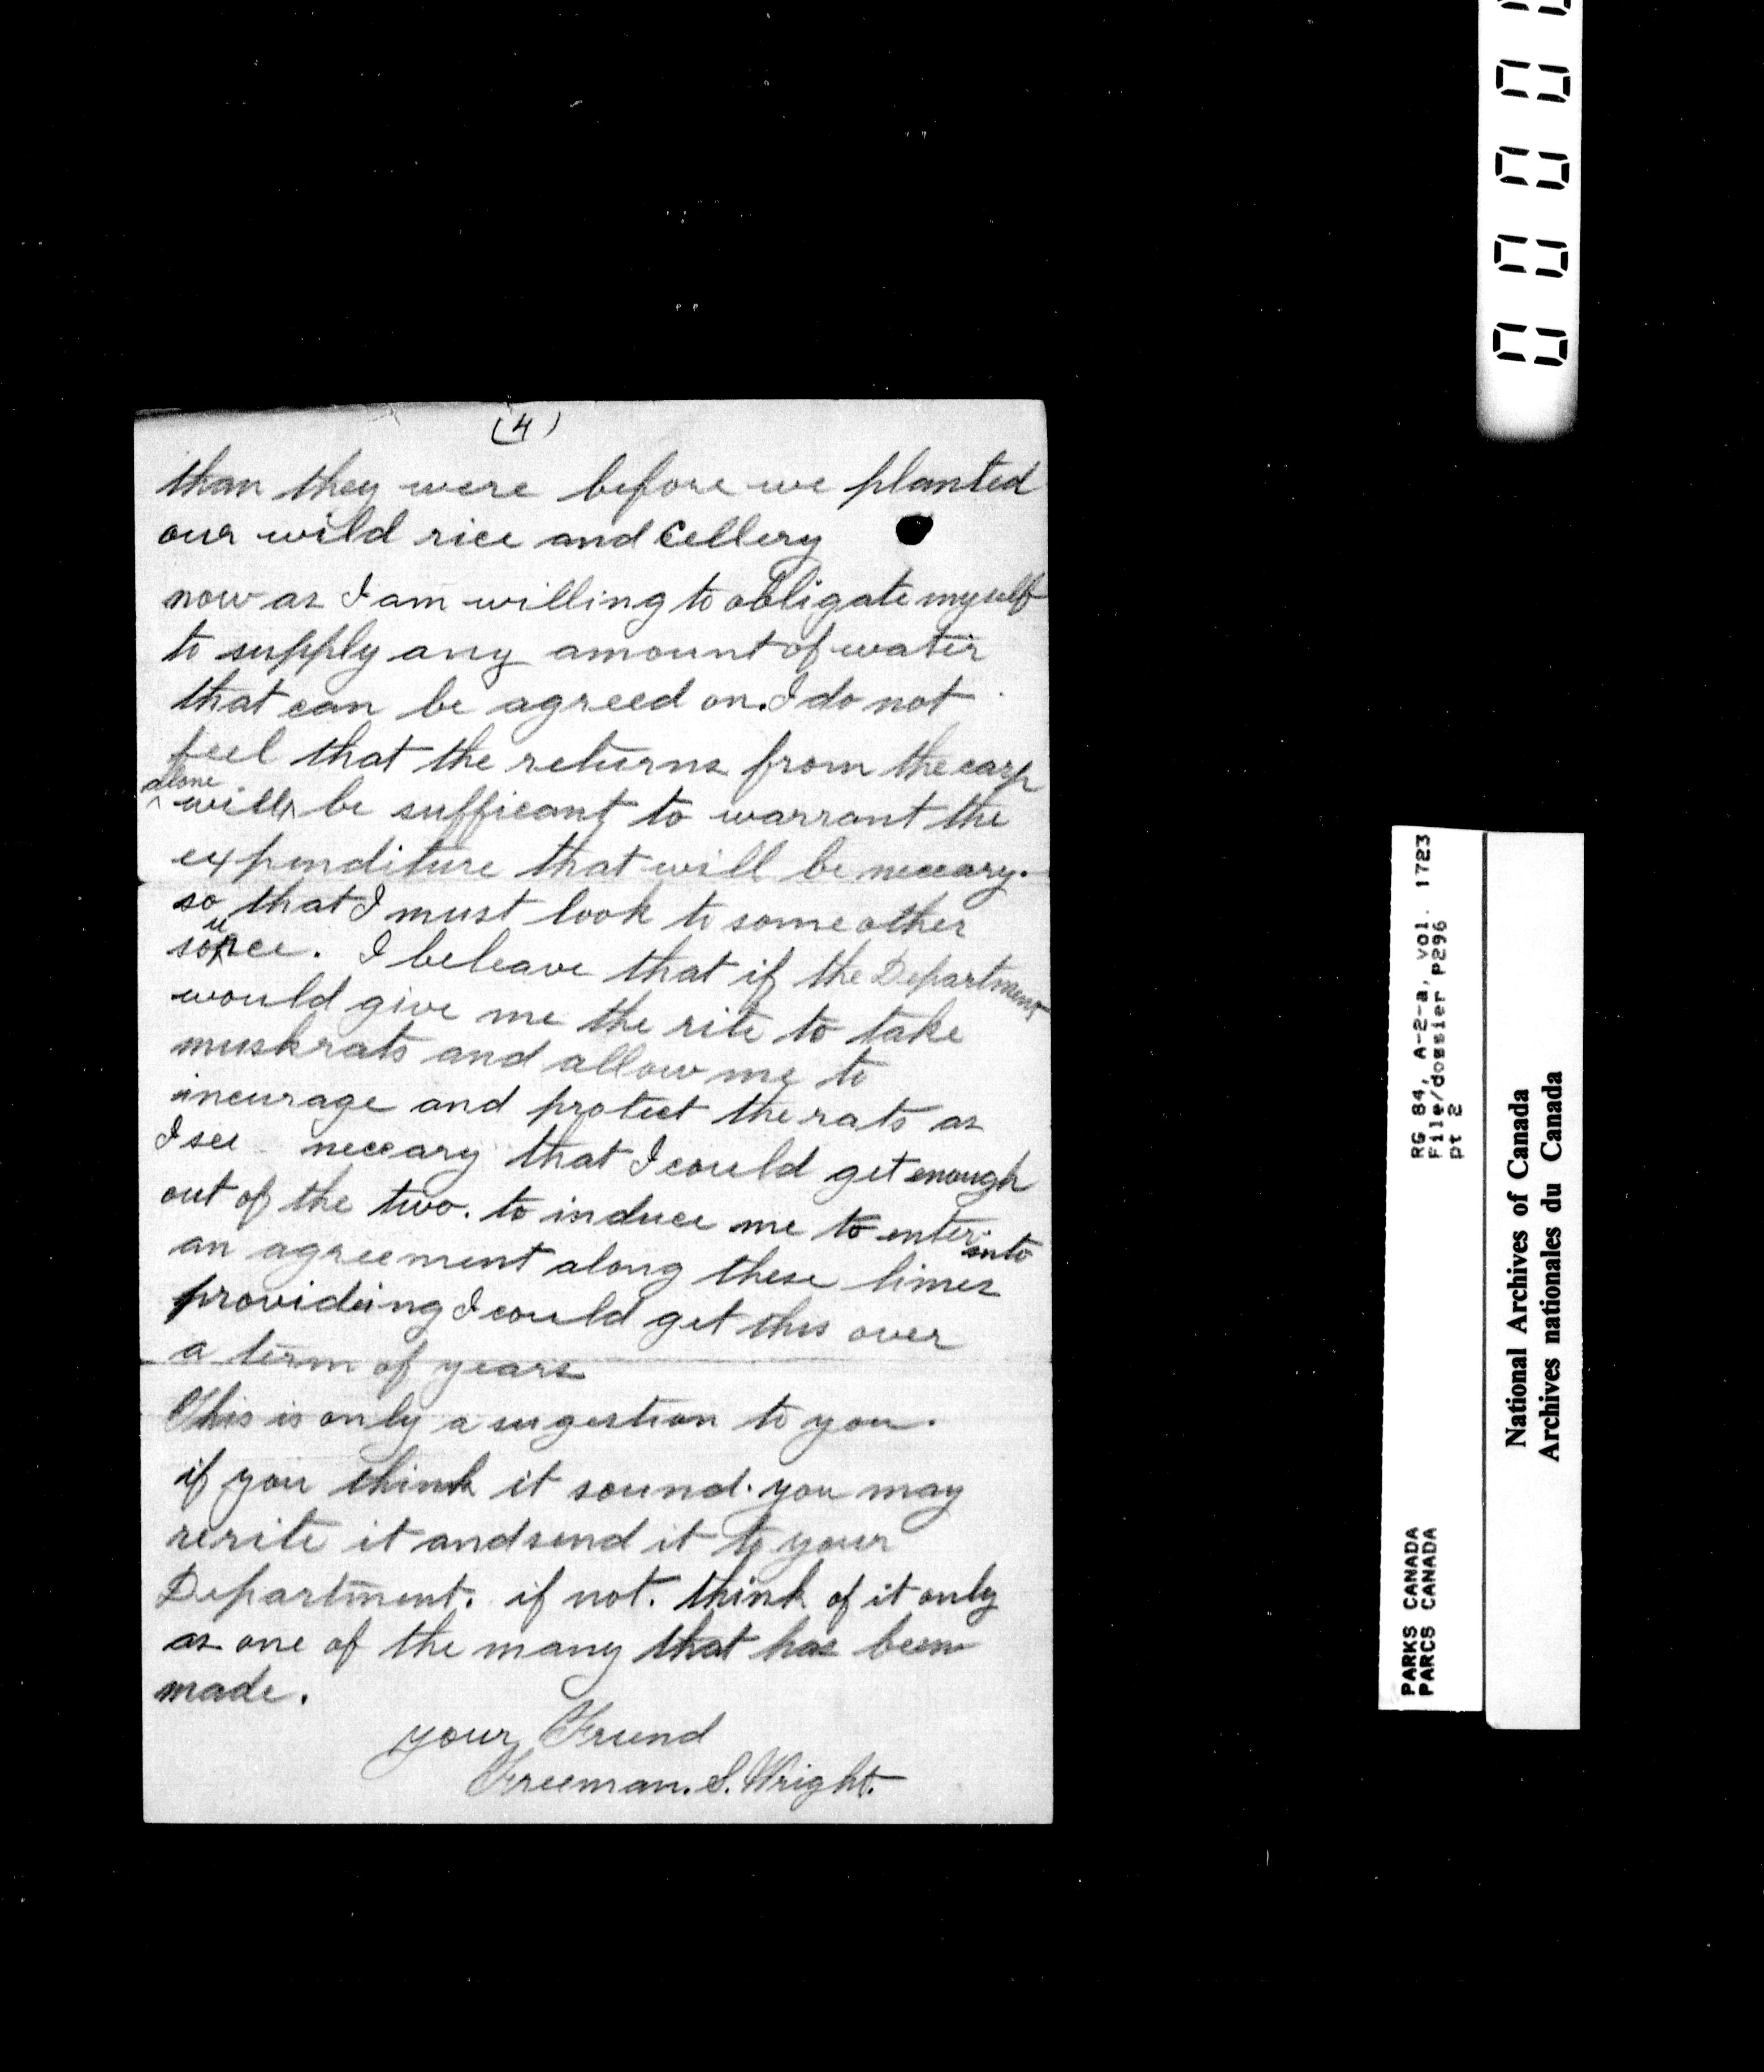 (4)
than they were before we planted
our wild rice and Cellery
now as I am willing to obligate myself
to supply any amount of water
that can be agreed on. I do not
feel that the returns from the carp
alone
will be sufficant to warrant the
expenditure that will be neccary.
so that I must look to some other
source. I beleave that if the Department
would give me the rite to take
muskrats and allow me to
incurage and protect the rats as
I see neccary that I could get enough
out of the two. to induce me to enter into
an agreement along these lines
provideing I could get this over
a term of years
This is only a sugestion to you.
if you think it sound. you may
rerite it and send it to your
Department. if not. think of it only
as one of the many that has been
made.
your Friend
Freeman. S. Wright.
0 0 0 0
RG 84, A-2-a, vol. 1723
File/dossier P296
pt 2
PARKS CANADA
PARCS CANADA
National Archives of Canada
Archives nationales du Canada